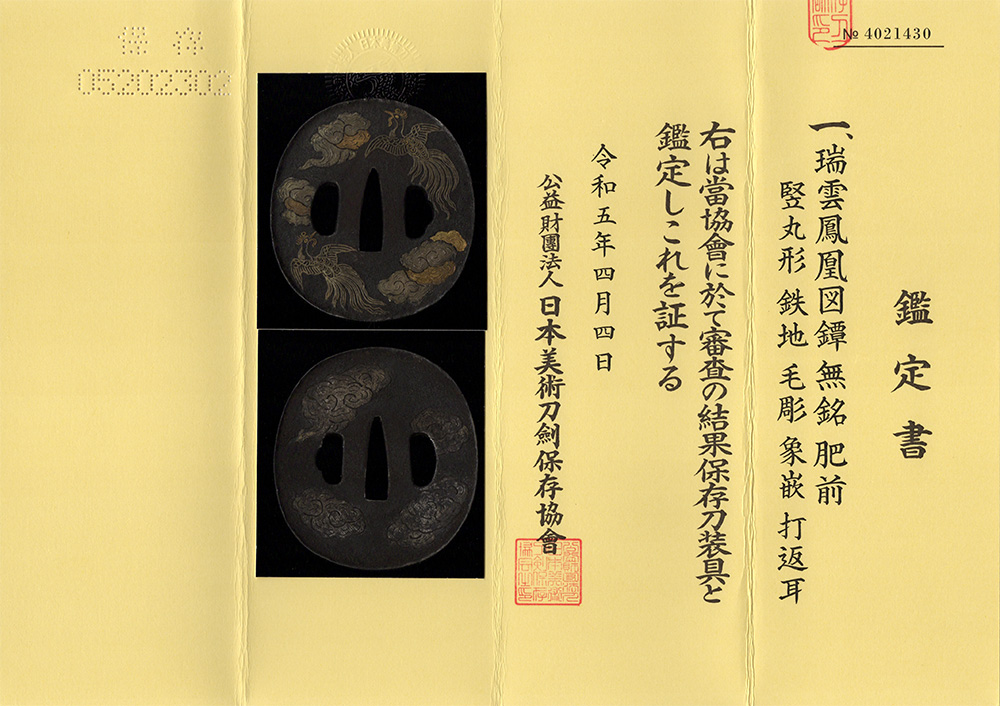 № 4021430
鑑定書
一、瑞雲鳳凰図鐔 無銘 肥前
竪丸形 鉄地 毛彫 象嵌 打返耳
右は當協會に於て審査の結果保存刀装具と
鑑定しこれを証する
令和五年四月四日
公益財團法人 日本美術刀劍保存協會
保存
05202302